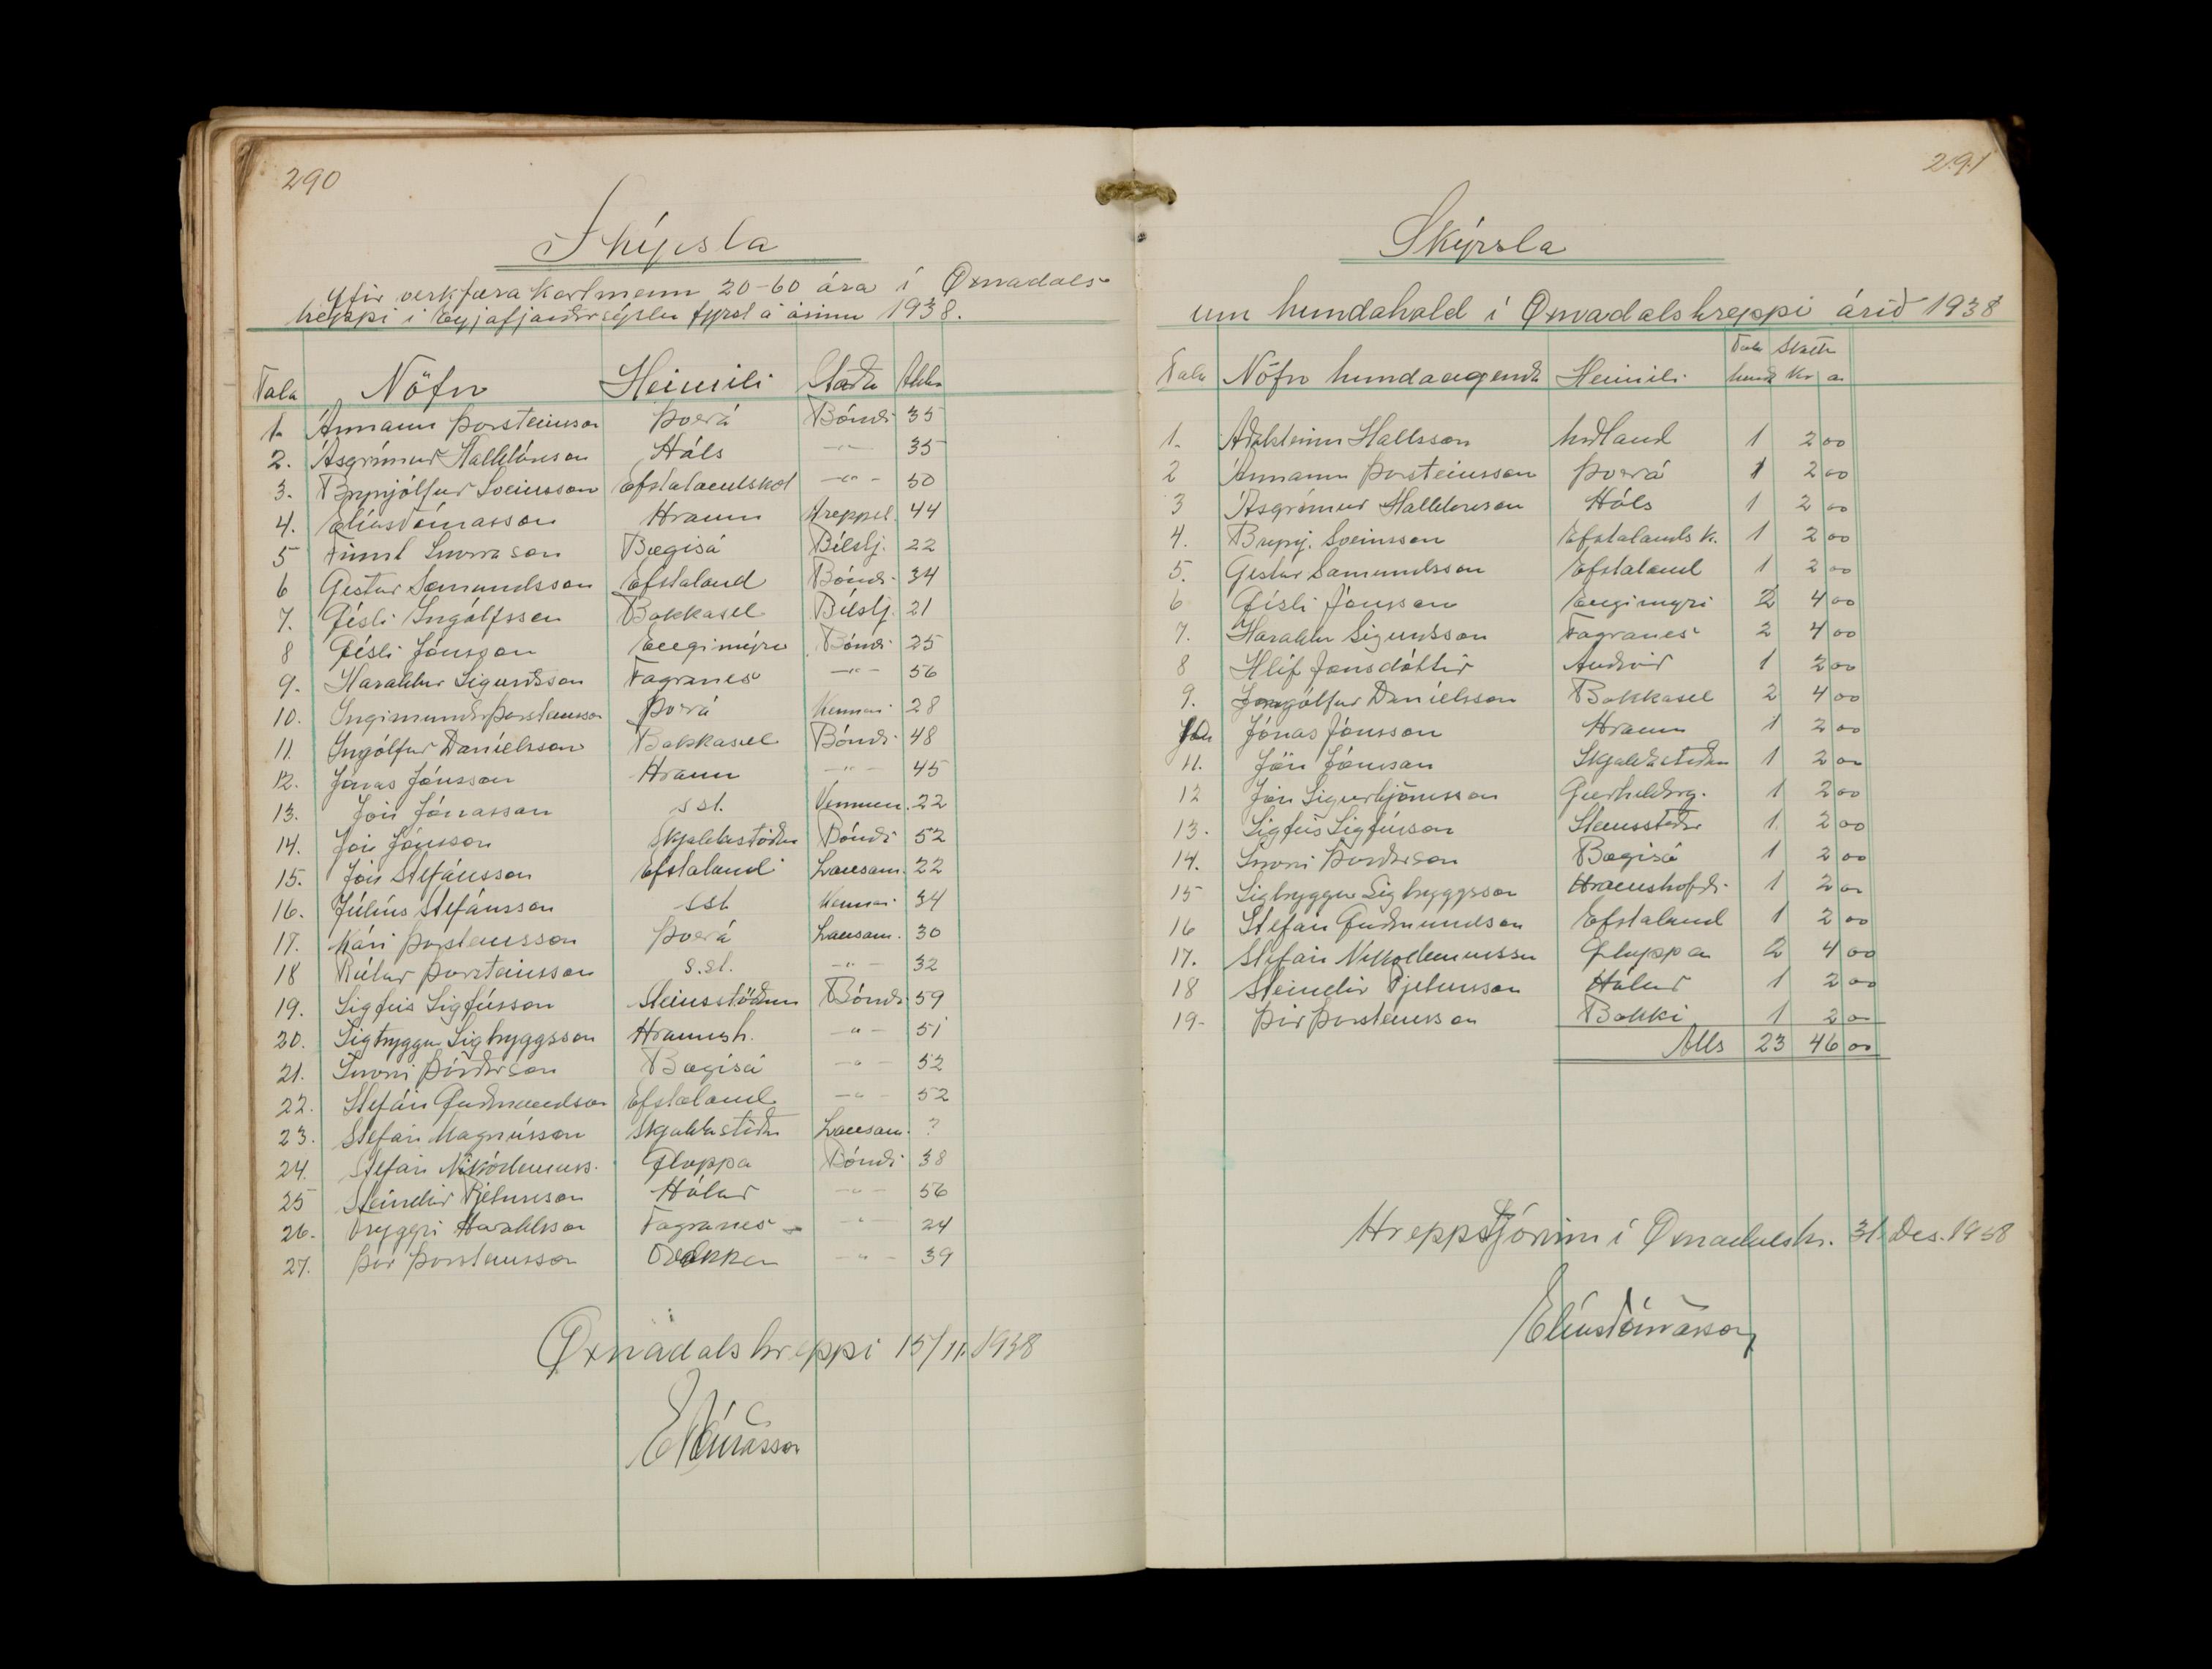 290
Skýrsla
yfir verkfæra karlmenn 20-60 ára í Øxnadals-
hreppi í Eyjafjarðarsýslu fyrst á árinu 1938.
Tala Nöfn Heimili Staða Aldur
1. Ármann Þorsteinsson Þverá Bóndi 35
2. Ásgrímur Halldórsson Háls -"- 35
3. Brynjólfur Sveinsson Efstalandskot -"- 50
4. Elías Tómasson Hraun Hreppst. 44
5 Finnl Snorrason Bægisá Bílstj. 22
6 Gestur Sæmundsson Efstaland Bóndi 34
7. Gísli Ingólfsson Bakkasel Bílstj. 21
8 Gísli Jónsson Engimýri Bóndi 25
9. Haraldur Sigurðsson Fagranes -"- 56
10. Ingimundur Þorsteinsson Þverá Kennari 28
11. Ingólfur Daníelsson Bakkasel Bóndi 48
12. Jónas Jónsson Hraun -"- 45
13. Jón Jónasson s.st. Vinnum. 22
14. Jón Jónsson Skjaldastöðum Bóndi 52
15. Jón Stefánsson Efstalandi Lausam. 22
16. Júlíus Stefánsson s.st. Kennari 34
17. Kári Þorsteinsson Þverá Lausam. 30
18 Rútur Þorsteinsson s.st. -"- 32
19. Sigfús Sigfússon Steinsstöðum Bóndi 59
20. Sigtryggur Sigtryggsson Hraunsh. -"- 51
21. Snorri Þórðarson Bægisá -"- 52
22. Stefán Guðmundsson Efstaland -"- 52
23. Stefán Magnússon Skjaldastöðum Lausam. ?
24. Stefán Nikódemuss. Gloppa Bóndi 38
25 Steindór Pjetursson Hólar -"- 56
26. Tryggvi Haraldsson Fagranes -"- 24
27. Þór Þorsteinsson Bakka -"- 39
Øxnadalshreppi 15/11. 1938
ETómasson
291
Skýrsla
um hundahald í Øxnadalshreppi árið 1938
Tala Nöfn hundaeigenda Heimili Tala hunda Skattur Kr a
1. Aðalsteinn Hallsson Miðland 1 2 00
2 Ármann Þorsteinsson Þverá 1 2 00
3 Ásgrímur Halldórsson Háls 1 2 00
4. Brynj. Sveinsson Efstalands k. 1 2 00
5. Gestur Sæmundsson Efstaland 1 2 00
6 Gísli Jónsson Engimýri 2 4 00
7. Haraldur Sigurðsson Fagranes 2 4 00
8 Hlíf Jónsdóttir Auðnir 1 2 00
9. Ingólfur Daníelsson Bakkasel 2 4 00
10. Jónas Jónsson Hraun 1 2 00
11. Jón Jónsson Skjaldastöðum 1 2 00
12 Jón Sigurbjörnsson Geirhildarg. 1 2 00
13. Sigfús Sigfússon Steinsstaðir 1 2 00
14. Snorri Þórðarson Bægisá 1 2 00
15 Sigtryggur Sigtryggsson Hraunshöfði 1 2 00
16 Stefán Guðmundsson Efstaland 1 2 00
17. Stefán Nikodemusson Gloppa 2 4 00
18 Steindór Pjetursson Hólar 1 2 00
19. Þór Þorsteinsson Bakki 1 2 00
Alls 23 46 00
Hreppstjórinn í Øxnadalshr. 31. Des. 1938
Elías Tómasson